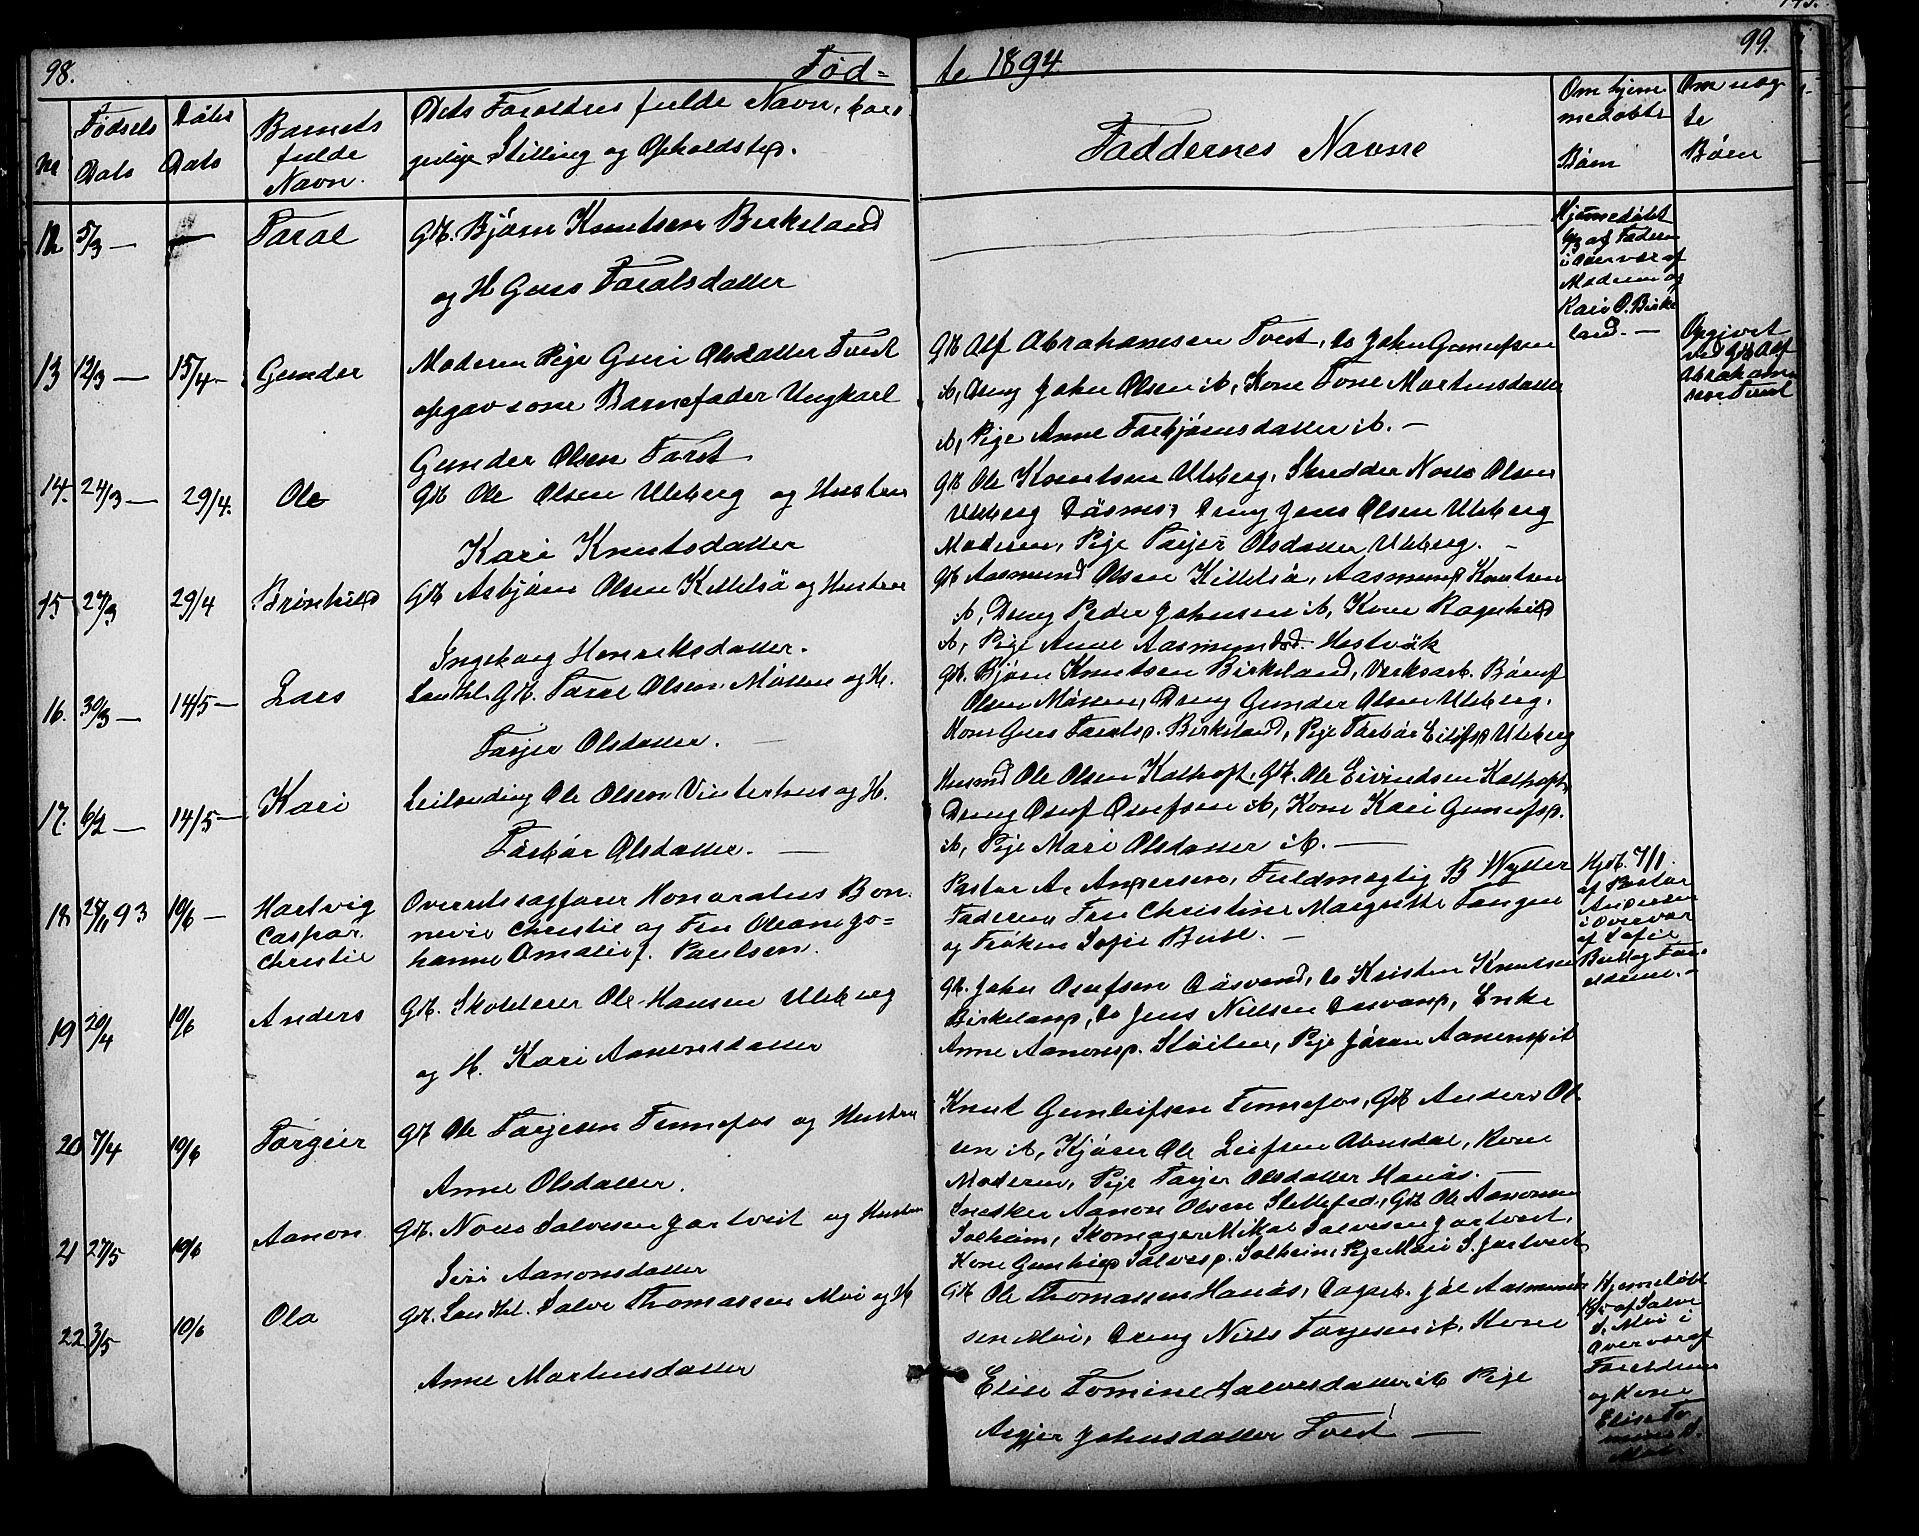 98.
Fød-
te 1894.
99.
No
Fødsels Dato
Døbs Dato
Barnets fulde Navn.
Dets Forældres fulde Navn, bor-
gerlige Stilling og Opholdsted.
Faddernes Navne
Om hjem-
medøbte
Børn
Om uæg
te
Børn
12 5/3 — Taral
Gbr. Bjørn Knutsen Birkeland
og H Guro Taralsdatter
Hjemmedøbt
af Faderen
i Overvær af
Moderen og
Kari O. Birke
land. —
13 12/3 — 15/4 — Gunder
Moderen Pige Guri Olsdatter Tveit
opgav som Barnefader Ungkarl
Gunder Olsen Taret
Gbr Alf Abrahamsen Tveit, do John Gunufsen
ib, Dreng John Olsen ib, Kone Tone Martinsdatter
ib, Pige Anne Torbjørnsdatter ib. —
Opgivet
ved Gbr Alf
Abraham-
sen Tveit
14. 24/3 — 29/4. Ole
Gbr Ole Olsen Uleberg og Hustru
Kari Knutsdatter
Gbr Ole Knutsen Uleberg, Skredder Nils Olsen
Uleberg Dåsnes, Dreng Jens Olsen Uleberg
Moderen, Pige Tarjer Olsdatter Uleberg. —
15 27/3 29/4 Brønhild
Gbr Asbjørn Olsen Kittelså og Hustru
Ingeborg Henriksdatter.
Gbr Aasmund Olsen Kittelså, Aasmund Knutsen
ib, Dreng Peder Johnsen ib, Kone Ragnhild
ib, Pige Anne Aasmundsd. Hestvåk
16. 30/3 — 14/5 — Lars
Gbr. Taral Olsen Mossen og H.
Tarjer Olsdatter. —
Gbr. Bjørn Knutsen Birkeland, Verksarb. Børuf
Olsen Mossen, Dreng Gunder Olsen Uleberg.
Kone Guro Taralsd. Birkeland, Pige Torbør Eilefsd Uleberg
17. 6/2 — 14/5 — Kari
Leilending Ole Olsen Vinterhus og H.
Torbør Olsdatter. —
Husmd Ole Olsen Kalhoft, Gbr. Ole Eivindsen Kalhoft,
Dreng Oluf Olufsen ib, Kone Kari Gunufsd.
ib, Pige Mari Olsdatter ib. —
18. 25/11 93 10/6 — Hartvig
Caspar
Christie
Overretssagfører Honoratus Bon-
nevie Christie og Fru Oleane Jo-
hanne Amalie f. Paulsen.
Pastor A. Andersen, Fuldmegtig B Wyller
Faderen Fru Christine Margrethe Tangen
og Frøken Sofie Bull. —
Hjdb. 7/1.
af Pastor
Andersen
i Overvær
af Sofie
Bull og For-
ældrene. —
19 20/4 10/6 Anders
Gbr. Skolelærer Ole Hansen Uleberg
og H. Kari Aanonsdatter
Gbr. John Olufsen Dåsvand, do Kristen Knutsen
Birkeland, do Jens Nielsen Dåsvand, Enke
Anne Aanonsd. Støilen, Pige Jøran Aanensd ib
20 7/4 10/6 Torgeir
Gbr Ole Tarjesen Fennefos og Hustru
Anne Olsdatter.
Knut Gunleifsen Fennefos, Gbr Anders Ol
sen ib, Kjøier Ole Leifsen Abusdal, Kone
Moderen, Pige Tarjer Olsdatter Hanås. —
21 27/5 10/6 Aanon
Gbr. Nils Salvesen Jortveit og Hustru
Siri Aanonsdatter
Snekker Aanon Olsen Slettefed, Gbr Ole Aanonsen
Solheim, Skomager Mikal Salvesen Jortveit,
Kone Gunhild Salvesd. Solheim, Pige Mari S. Jortveit
22 3/5 10/6 Ola
Gbr. Salve Thomassen Moi og H
Anne Martinsdatter
Gbr Ole Thomassen Hanås, Dagarb. Jøl Aasmund-
sen Moi, Dreng Niels Tarjesen ib, Kone
Elise Tomine Salvesdatter ib Pige
Asgjer Johnsdatter Tveit —
Hjemmedøbt
af Salve
T. Moi i
Overvær af
Forældrene
og Kone
Elise To-
mine S.
Moi.